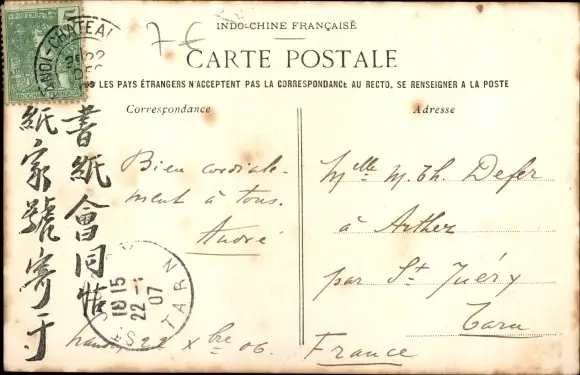 INDO-CHINE FRANÇAISE
7 €
CARTE POSTALE
LES PAYS ÉTRANGERS N'ACCEPTENT PAS LA CORRESPONDANCE AU RECTO, SE RENSEIGNER A LA POSTE
Correspondance
Bien cordiale-
ment à tous.
André
22 Xbre 06.
Adresse
Melle M. Th. Defer
à Arthez
par St Juéry
Tarn
France
書紙會同
紙家號寄于
HANOI-CHATEAU
18 15
22 - 1
07
TARN